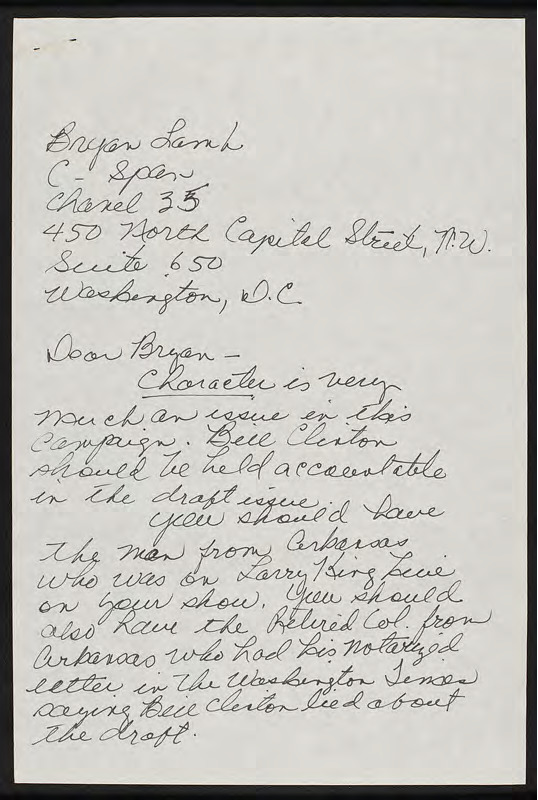 Bryan Lamb
C- Span
Chanel 35
450 North Capital Street, N.W.
Suite 650
Washington, D.C.
Dear Bryan -
Character is very
much an issue in this
campaign. Bill Clinton
should be held accountable
in the draft issue.
You should have
the man from Arkansas
who was on Larry King Live
on your show. You should
also have the Retired Col. from
Arkansas who had his notarized
letter in The Washington Times
saying Bill Clinton lied about
the draft.